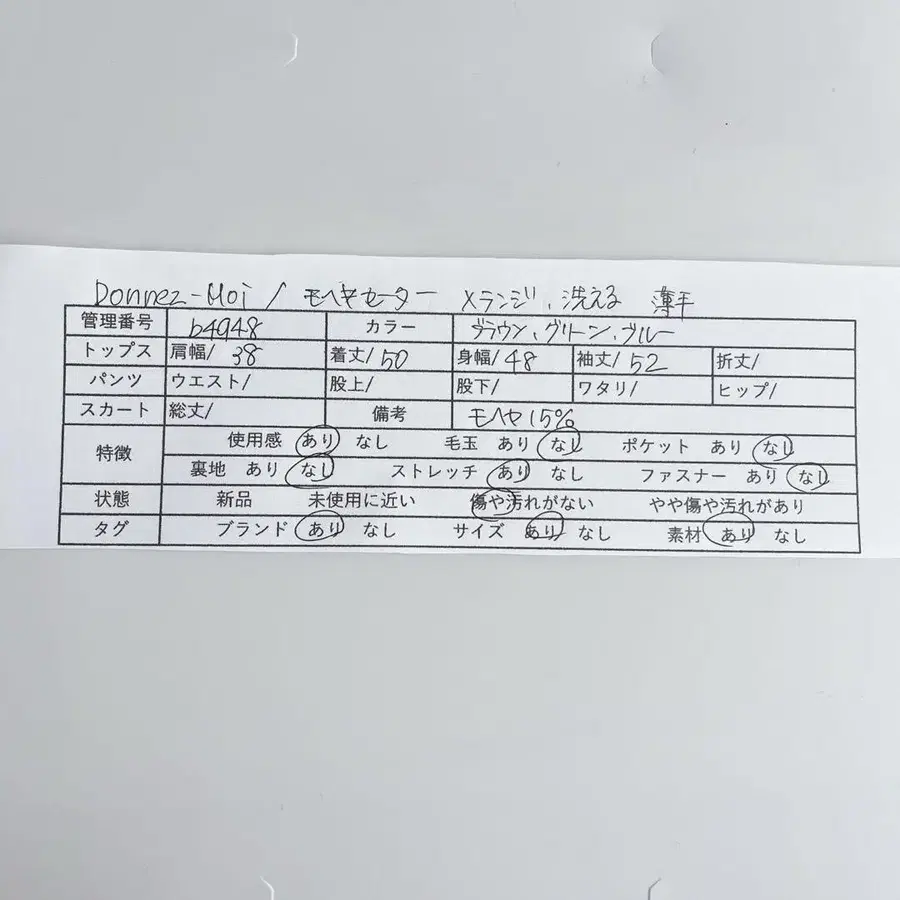 Donnez-Moi / モヘヤセーター メランジ、洗える 薄手
管理番号 b4948 カラー ブラウン、グリーン、ブルー
トップス 肩幅/ 38 着丈/ 50 身幅/ 48 袖丈/ 52 折丈/
パンツ ウエスト/ 股上/ 股下/ ワタリ/ ヒップ/
スカート 総丈/ 備考 モヘヤ15%
特徴 使用感 あり なし 毛玉 あり なし ポケット あり なし
裏地 あり なし ストレッチ あり なし ファスナー あり なし
状態 新品 未使用に近い 傷や汚れがない やや傷や汚れがあり
タグ ブランド あり なし サイズ あり なし 素材 あり なし